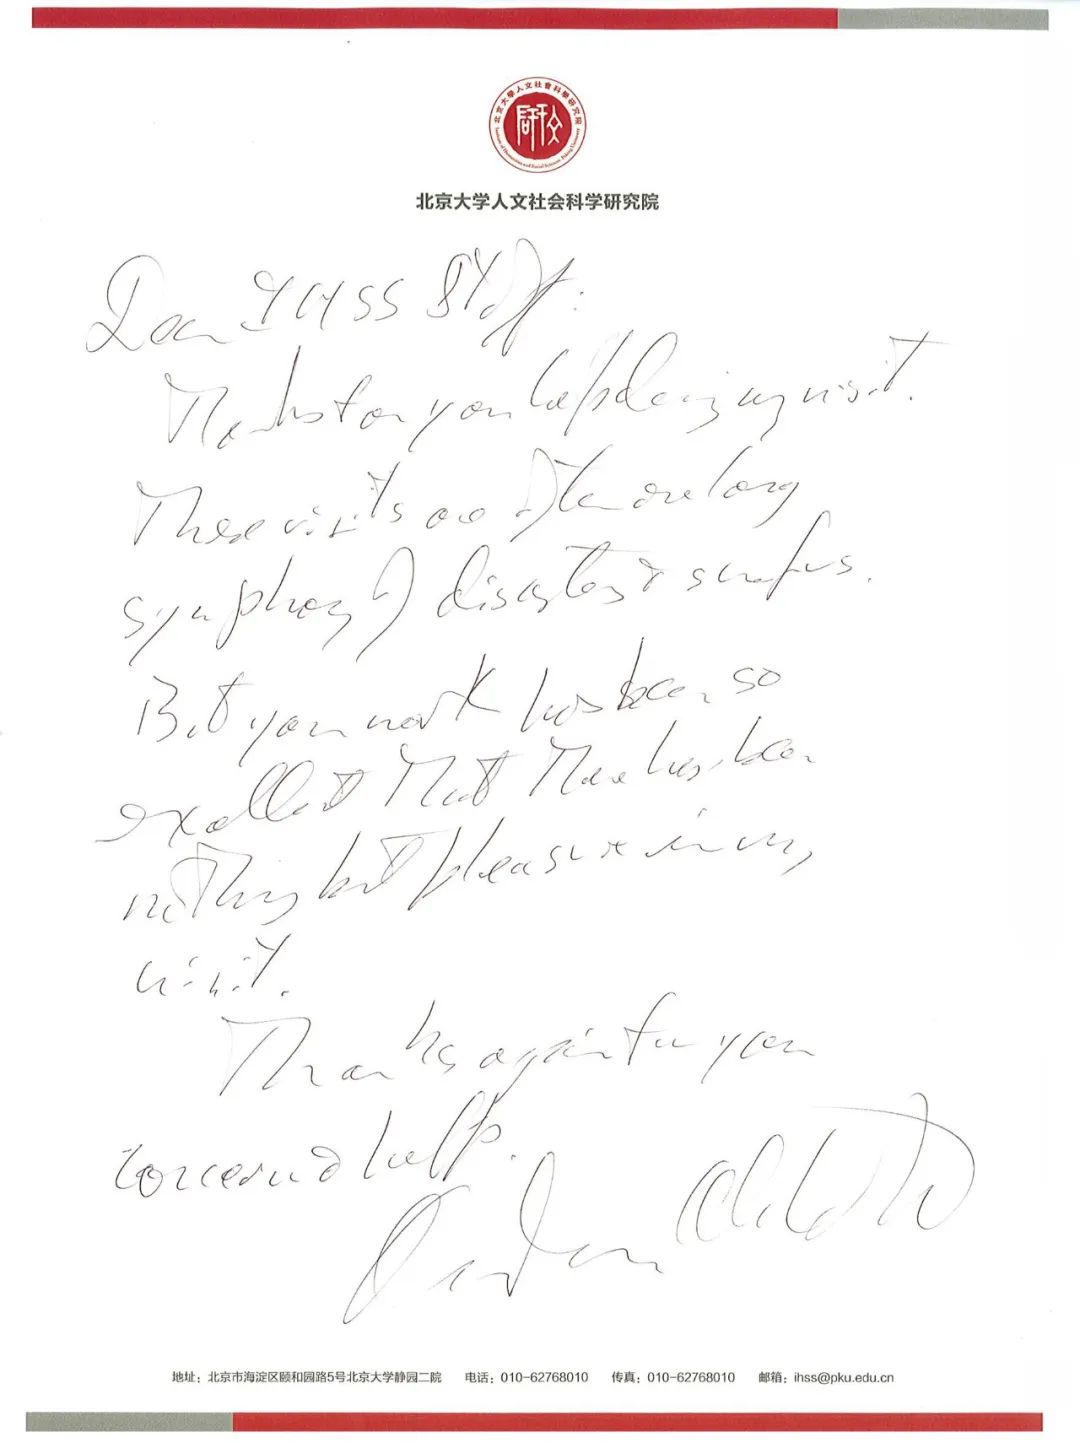 北京大學人文社會科學研究院
Institute of Humanities and Social Sciences, Peking University
北京大学人文社会科学研究院
Dear IHSS Staff:
Thanks for your help during my visit.
These visits are often one long
symphony of disasters & snafus.
But your work has been so
excellent that there has been
nothing but pleasure in my
visit.
Thanks again for your
concern & help.
地址：北京市海淀区颐和园路5号北京大学静园二院 电话：010-62768010 传真：010-62768010 邮箱：ihss@pku.edu.cn